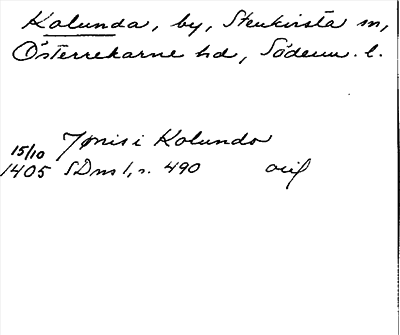 Kolunda, by, Stenkvista sn,
Österrekarne hd, Söderm. l.
Jønis i Kolundo
15/10
1405 SDns 1, s. 490 orig